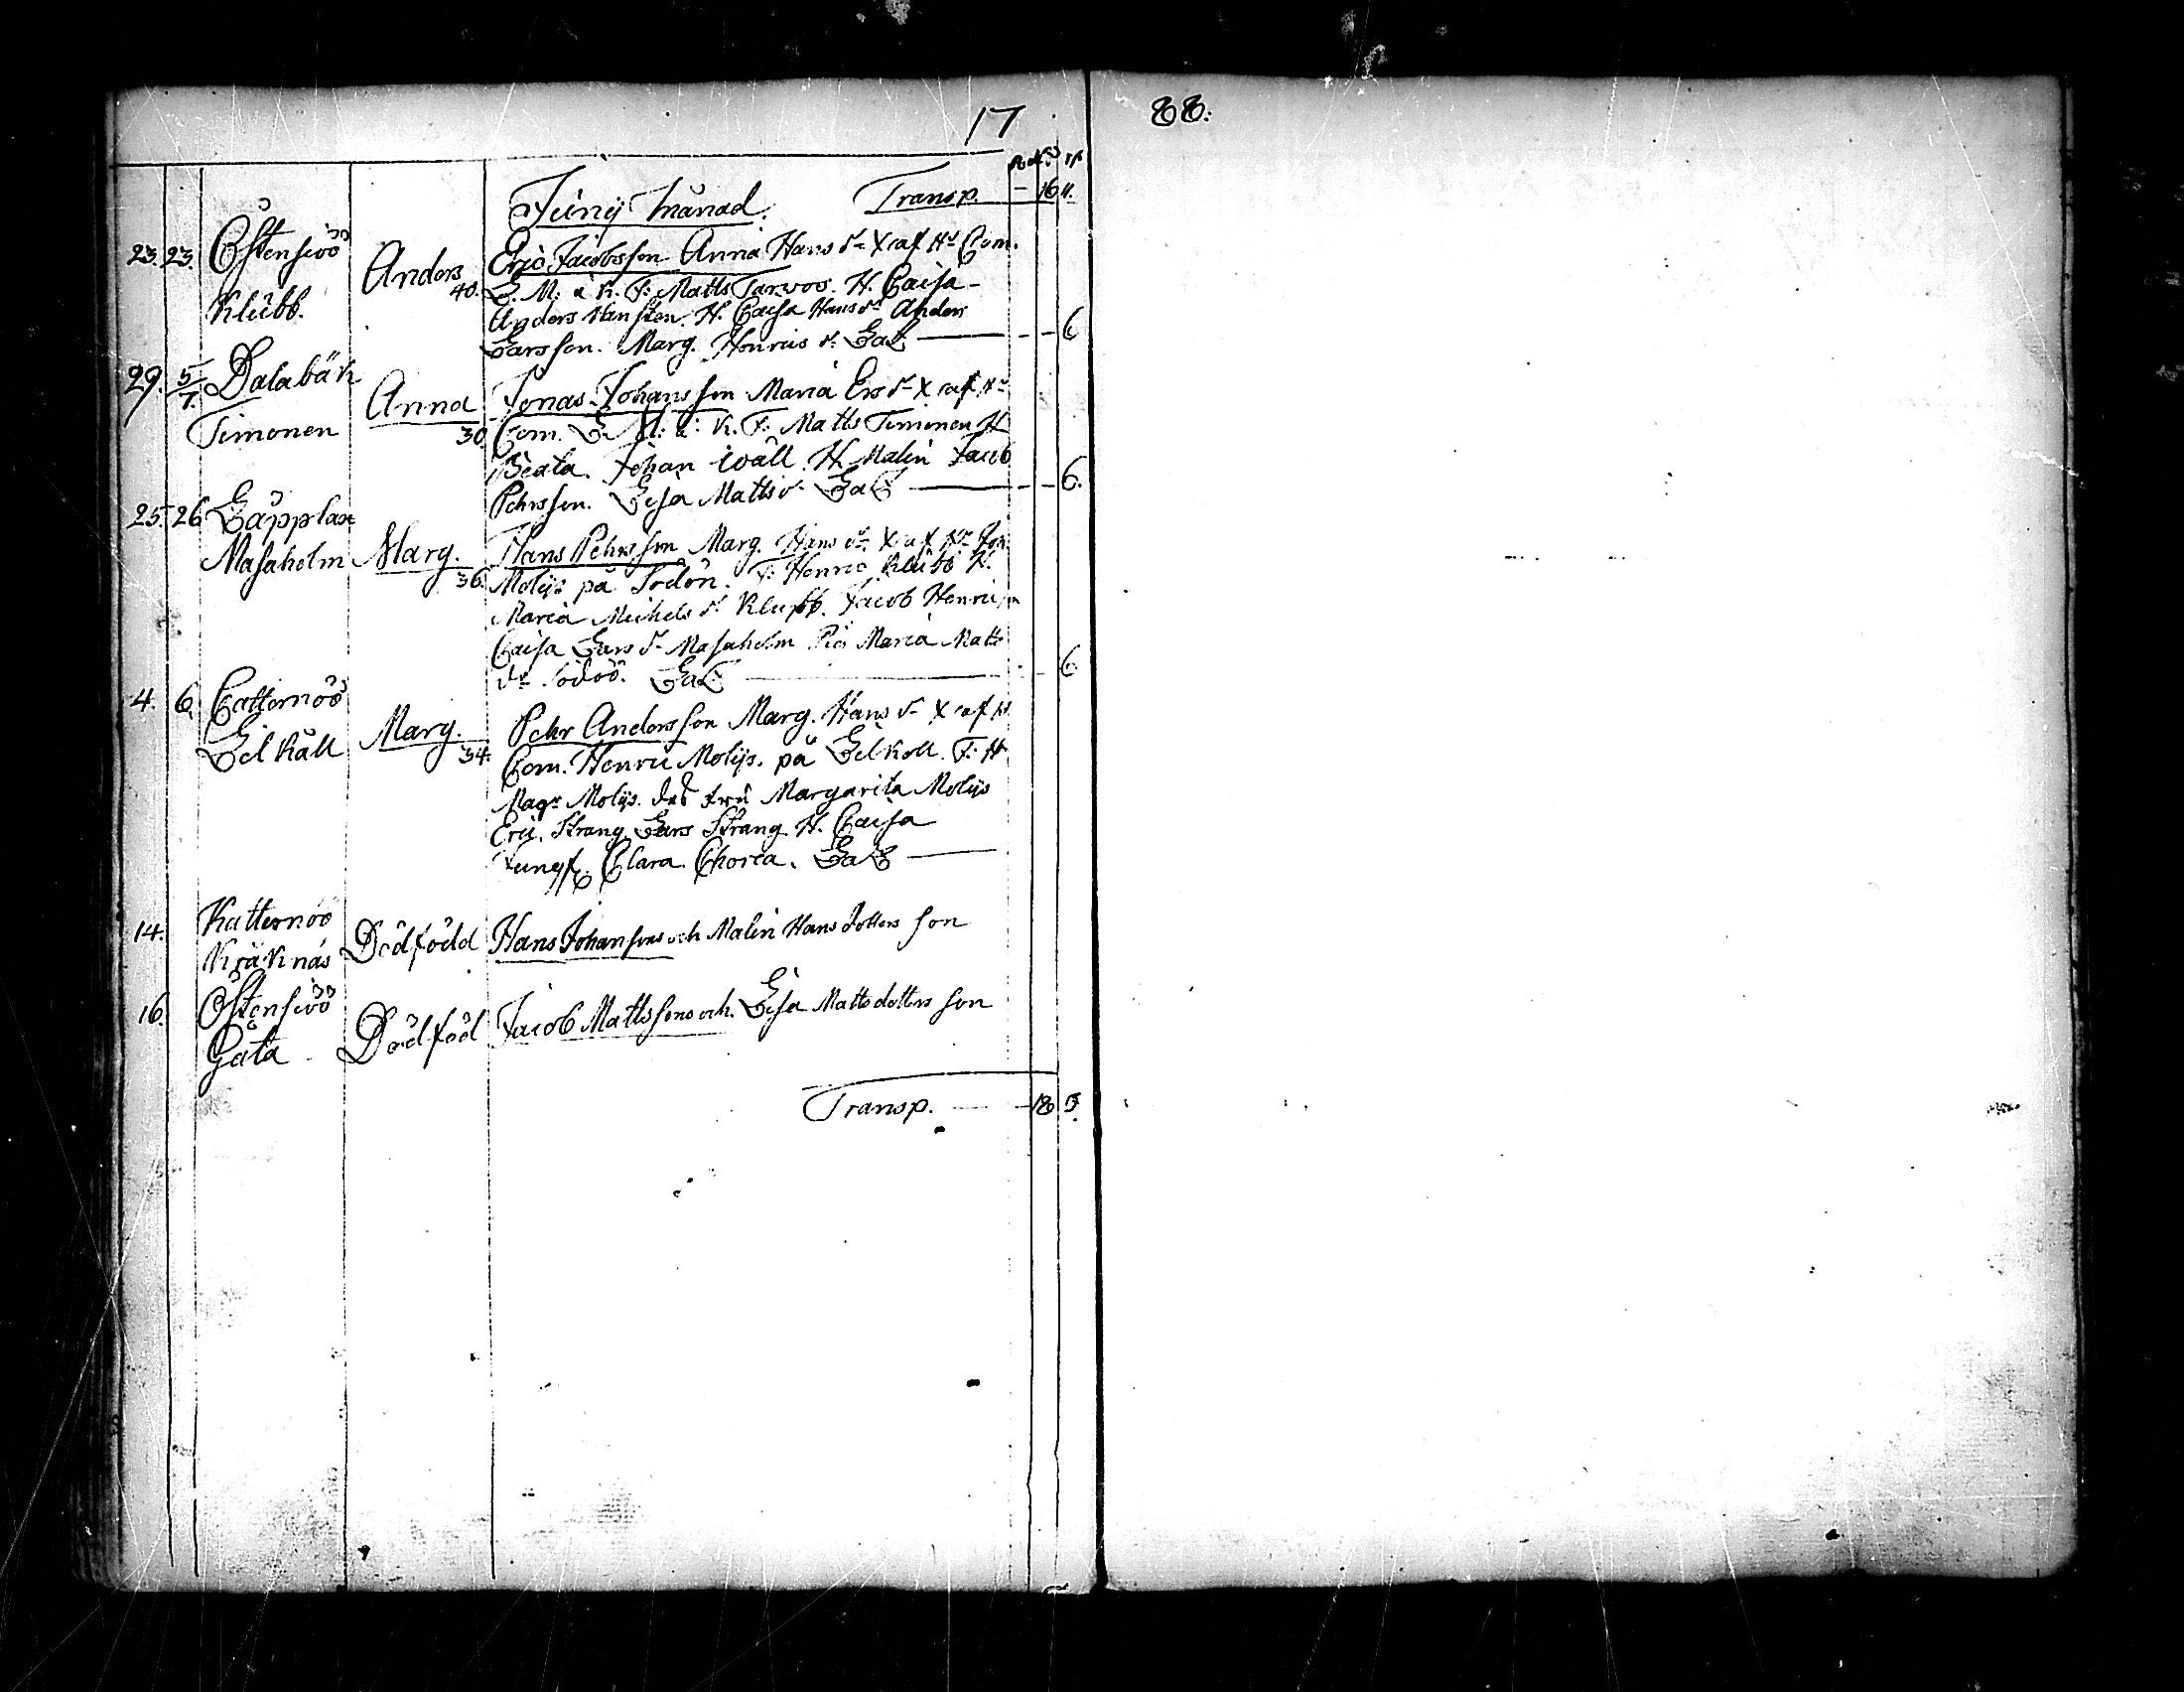 17
88.
Junij Månad. Transp. - 16 11.
23. 23. Östensiöö Anders Eric Jacobsson Anna Hans dr X af Hr Com.
40. L. M: a K. F: Matts Tarvos. H. Caisa
Klubb. Anders Hansten. H. Caisa Hans dr Anders
Larsson. Marg. Henrics dr LaS - - 6
29. 5/7. Dalabäk Anna Jonas Johansson Maria Ers dr X af Hr
Timonen 30. Com. L. M: a: K. F: Matts Timonen H
Beata. Johan Wäll. H. Malin Jacob
Pehrsson. Lisa Matts dr LaS - - 6.
25. 26 Läpplax
Masaholm Marg. Hans Pehrsson Marg. Hans dr X af Hr
36. Molijs på Sodön. F: Henric Klubb H.
Maria Michels dr Klubb. Jacob Henricsn
Caisa Lars dr Masaholm Pig Maria Matts
dr Södöö. LaS - 6.
4. 6. Catternöö Marg. Pehr Andersson Marg. Hans dr X af H
Lilkåll 34. Com. Henric Molijs. på Lilkoll. F: H
Magr Molijs. des fru Margarita Molijs
Eric. Strang. Lars Strang H. Caisa
Jungf. Clara Chorea. LaS
14. Katternöö
Kråknäs Dödfödd Hans Johansons och Malin Hans dotters son
16. Östensiöö
Gåta Dödföd Jacob Mattssons och Lisa Mattsdotters son
Transp. - 18